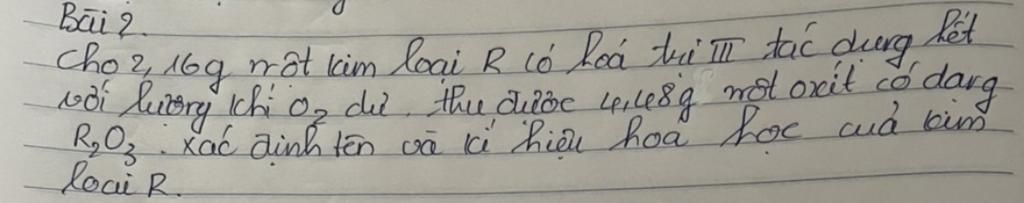 Bài 2.
Cho 2,16g một kim loại R có hoá trị III tác dụng hết
với lượng khí O2 dư. thu được 4,48g một oxit có dạng
R2O3. xác định tên và kí hiệu hoa học cuả kim
loại R.